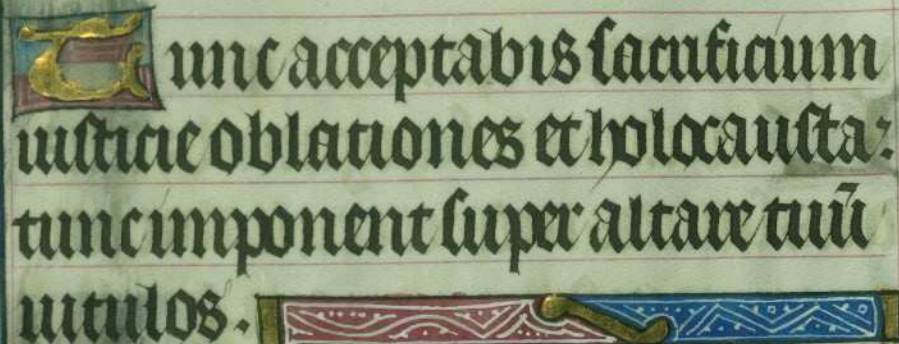 Tunc acceptabis sacrificium
iusticie oblationes et holocausta:
tunc imponent super altare tuū
uitulos.